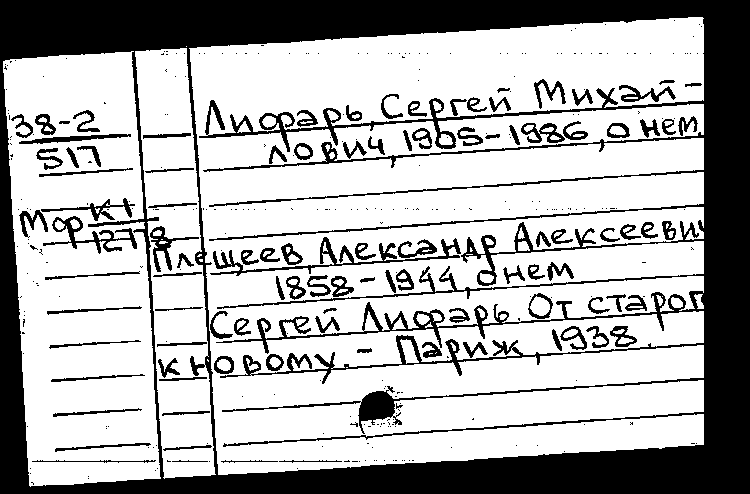 38-2
517
Лифарь, Сергей Михай-
лович, 1905-1986, о нем.
Мор К1
12778
Плещеев, Александр Алексеевич
1858-1944, о нем
Сергей Лифарь. От старог
к новому. - Париж, 1938.